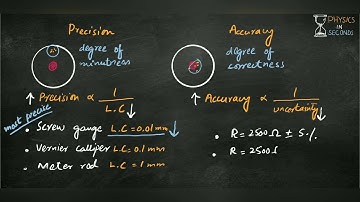 PHYSICS
IN
SECONDS
Precision
degree of
minutness
↑ Precision ∝ 1/L.C ↓
most precise
• Screw gauge L.C = 0.01 mm ↓
• Vernier calliper L.C = 0.1 mm
• Meter rod L.C = 1 mm
Accuracy
degree of
correctness
↑ Accuracy ∝ 1/uncertainty ↓
• R = 2500 Ω ± 5.%
• R = 2500